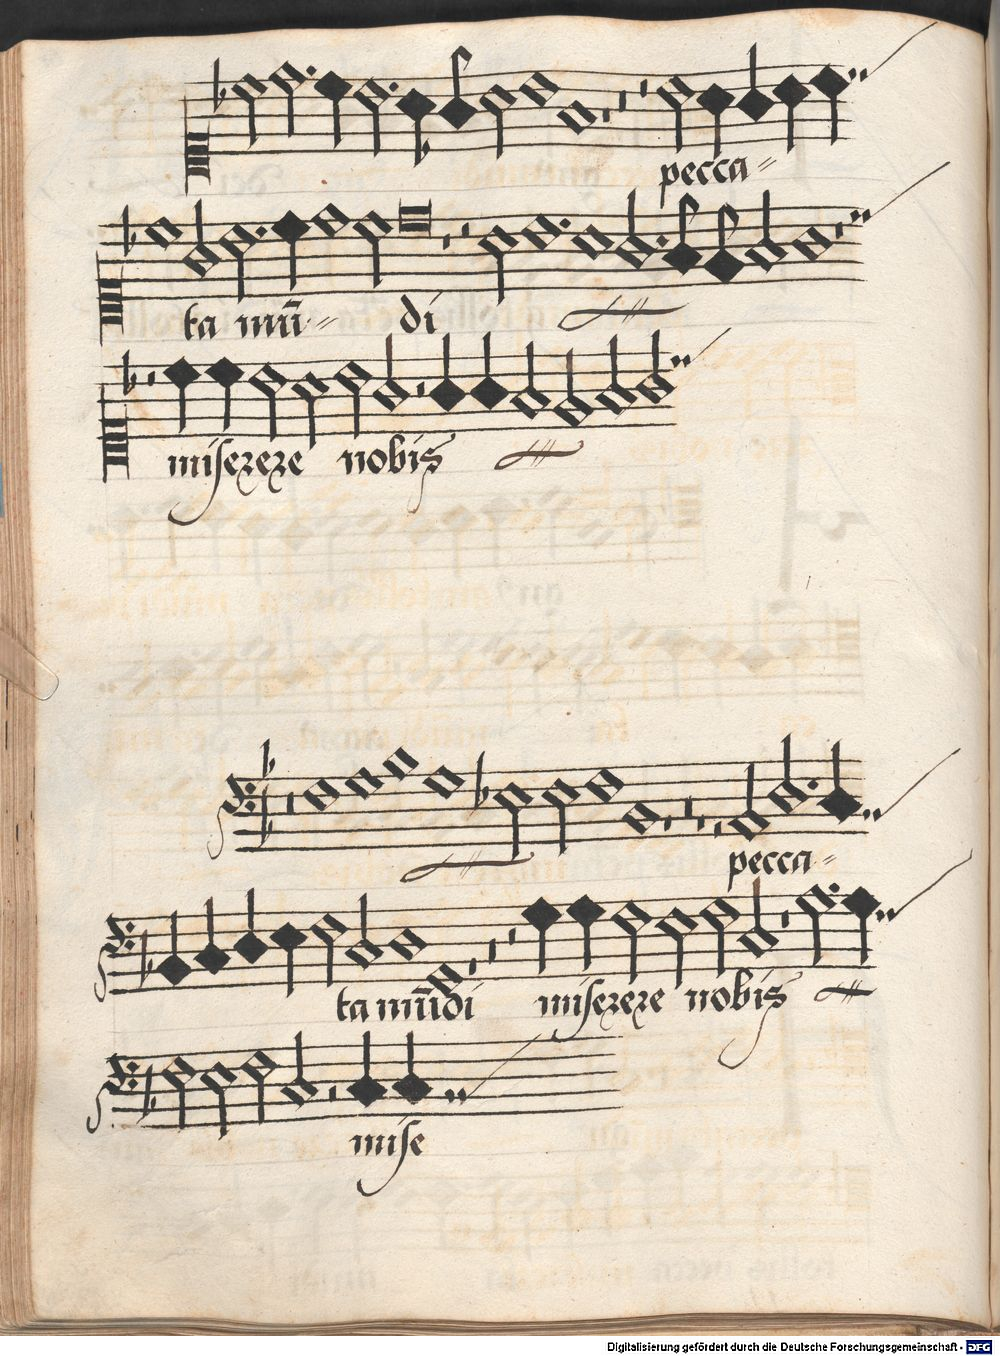 pecca=
ta mū= di
miserere nobis
pecca=
ta mūdi miserere nobis
mise
Digitalisierung gefördert durch die Deutsche Forschungsgemeinschaft - DFG